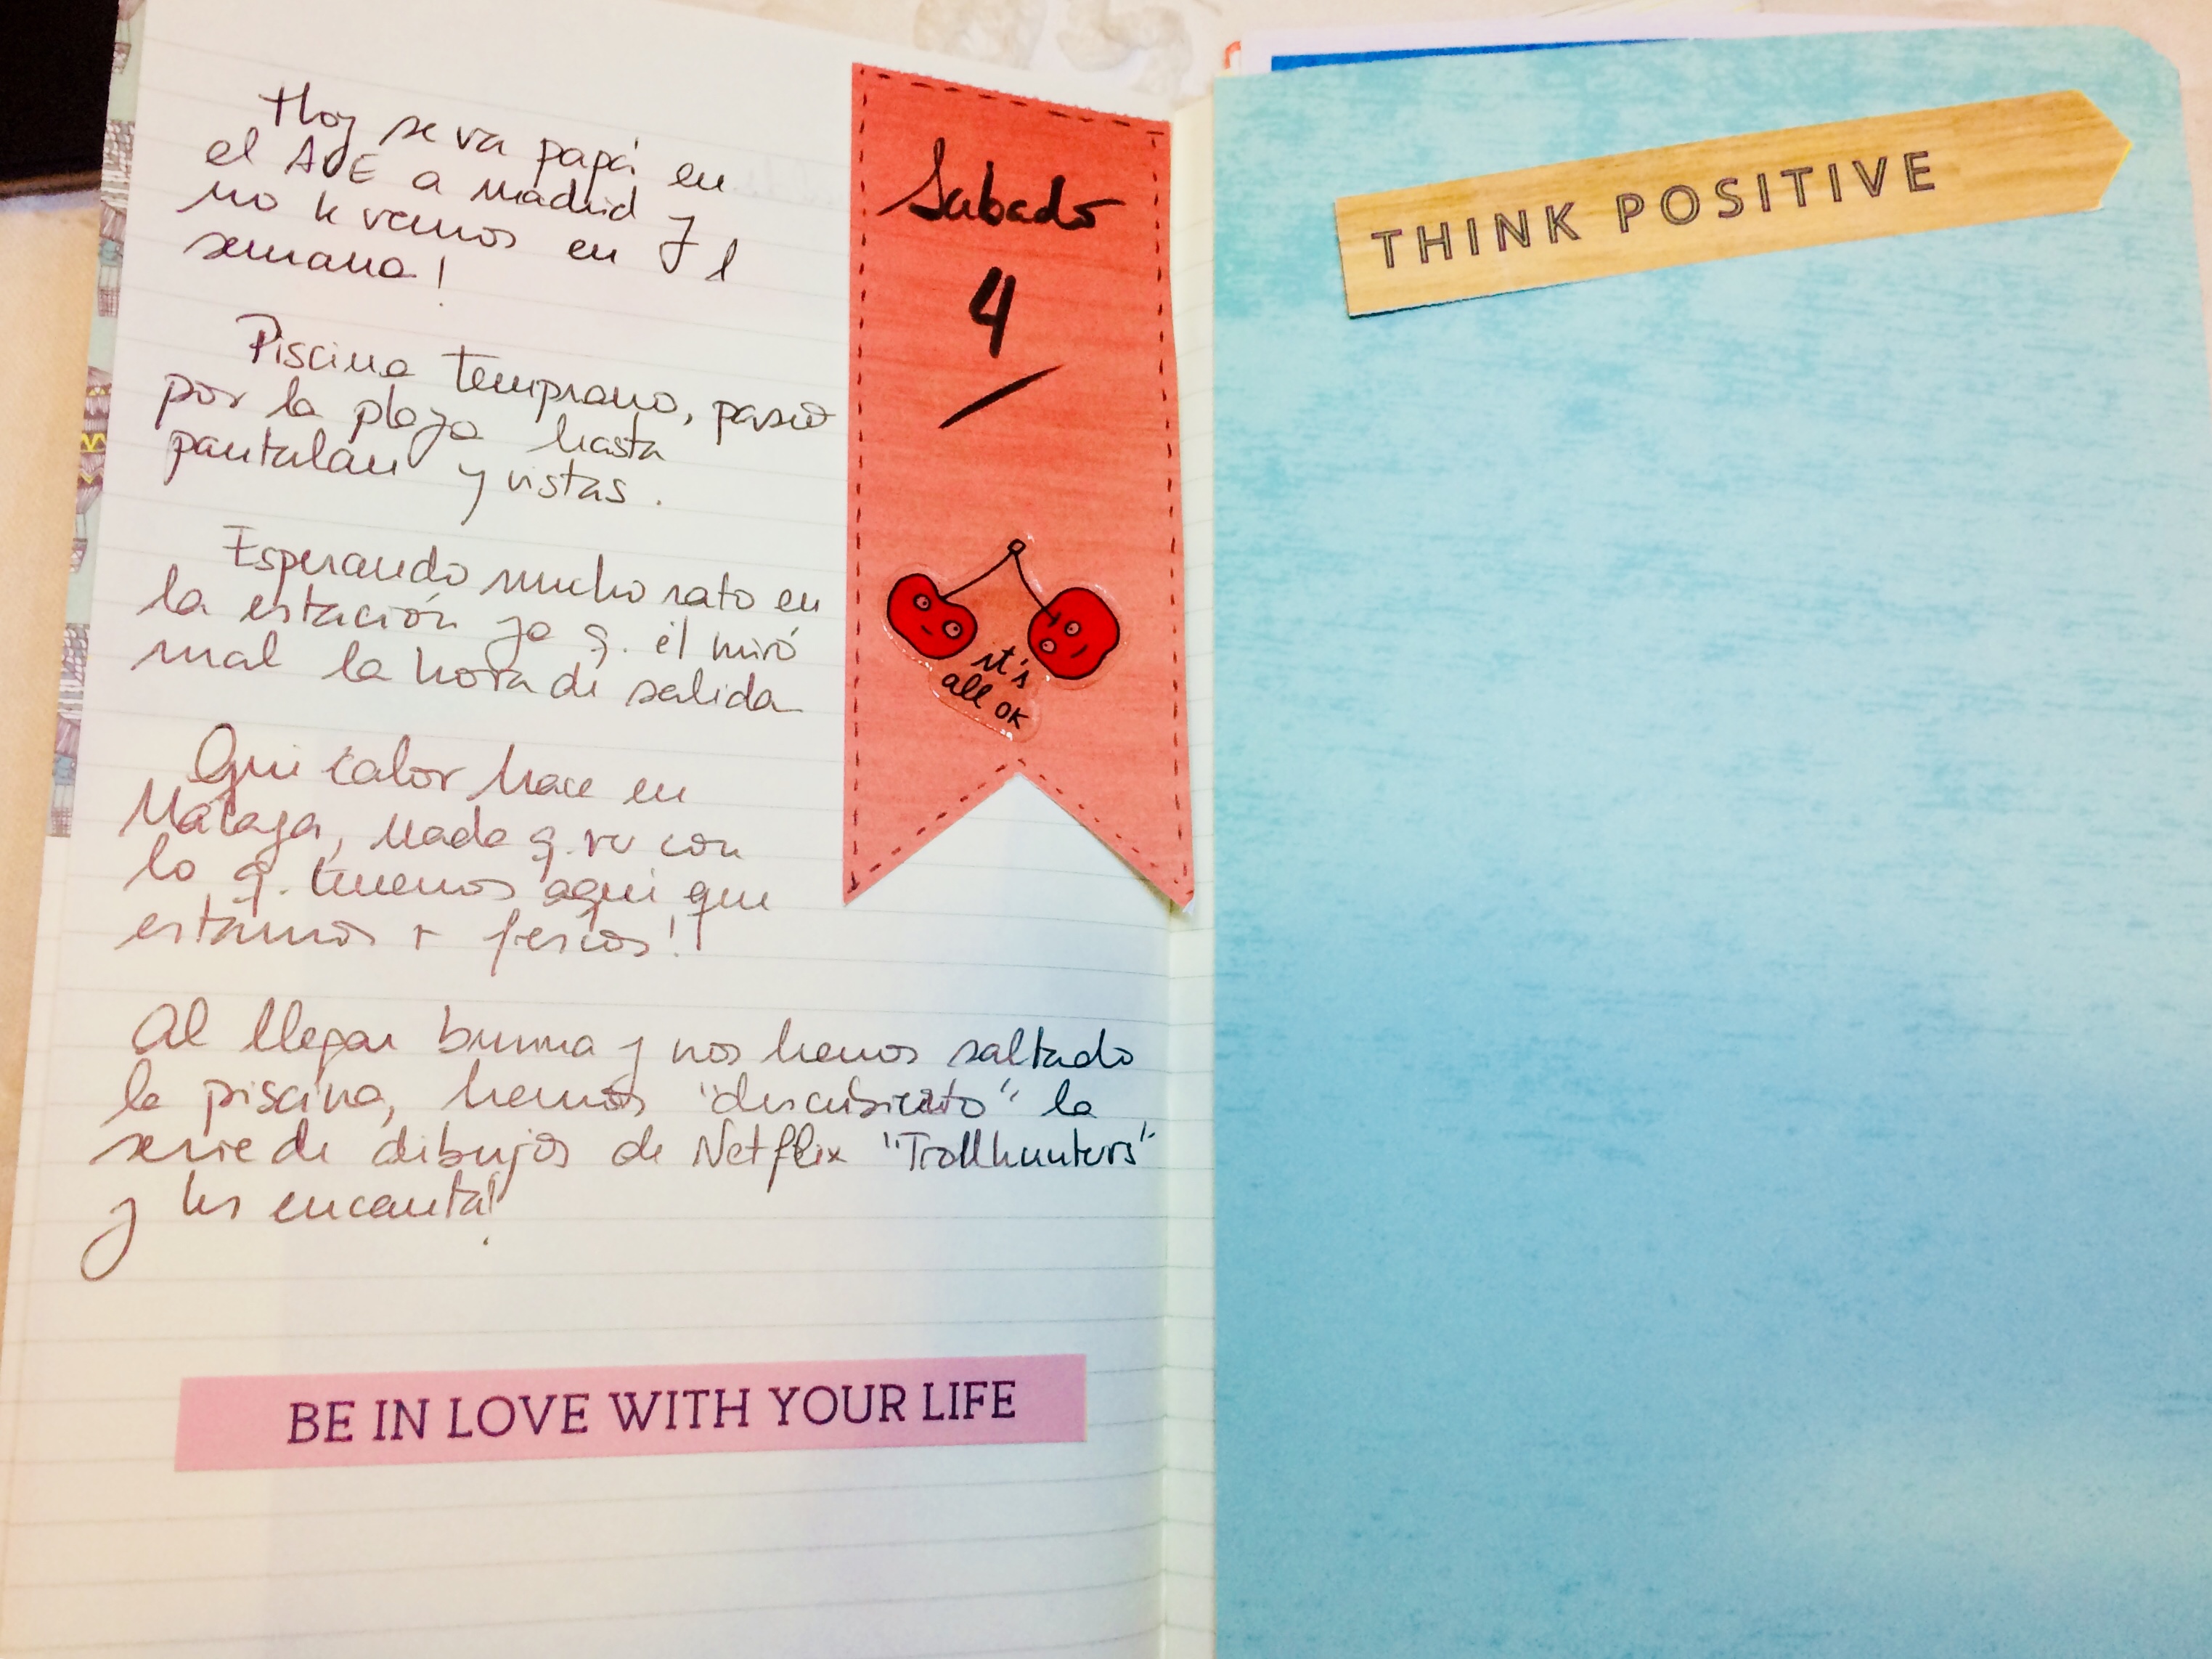 Hoy se va papá en
el AVE a Madrid y
no le vemos en 1
semana!
Piscina temprano, paseo
por la playa hasta
pantalán y vistas.
Esperando mucho rato en
la estación ya q. él miró
mal la hora de salida
Qué calor hace en
Málaga, nada q. ver con
lo q. tenemos aquí que
estamos + frescos!
Al llegar bruma y nos hemos saltado
la piscina, hemos "descubierto" la
serie de dibujos de Netflix "Trollhunters"
y les encanta!
BE IN LOVE WITH YOUR LIFE
Sabado
4
it's
all OK
THINK POSITIVE